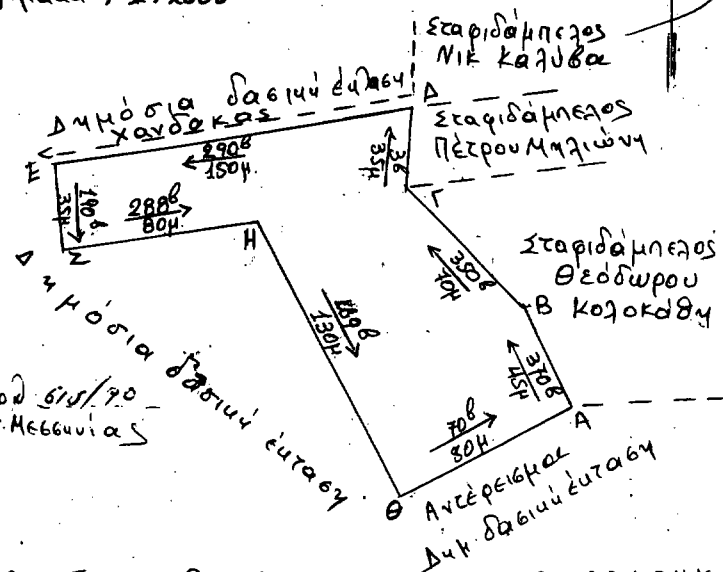 Σταφιδάμπελος
Νικ Καλύβα
Δημόσια δασική έκταση
Χάνδακας
Δ
Σταφιδάμπελος
Πέτρου Μηλιώνη
Ε
290ᵇ
150μ.
3ᵇ
35μ
Γ
190ᵇ
35μ
288ᵇ
80μ.
Ζ
Η
350ᵇ
70μ
Σταφιδάμπελος
Θεόδωρου
Κολοκάθη
Β
189ᵇ
130μ.
370ᵇ
45μ
Δημόσια δασική έκταση
615/90
Μεσσηνίας
70ᵇ
80μ.
Α
Θ
Αντέρεισμα
Δημ. δασική έκταση